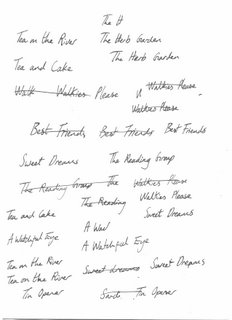 The H
Tea on the River The Herb Garden
The Herb Garden
Tea and Cake
Walk Walkies Please Walkies Please
Walkies Please
Best Friends Best Friends Best Friends
Sweet Dreams The Reading Group
The Reading Group The Walkies Please
The Reading Walkies Please
Tea and Cake Sweet Dreams
A War
A Watchful Eye
A Watchful Eye
Tea on the River
Sweet dreams Sweet Dreams
Tea on the River
Tin Opener Tin Opener